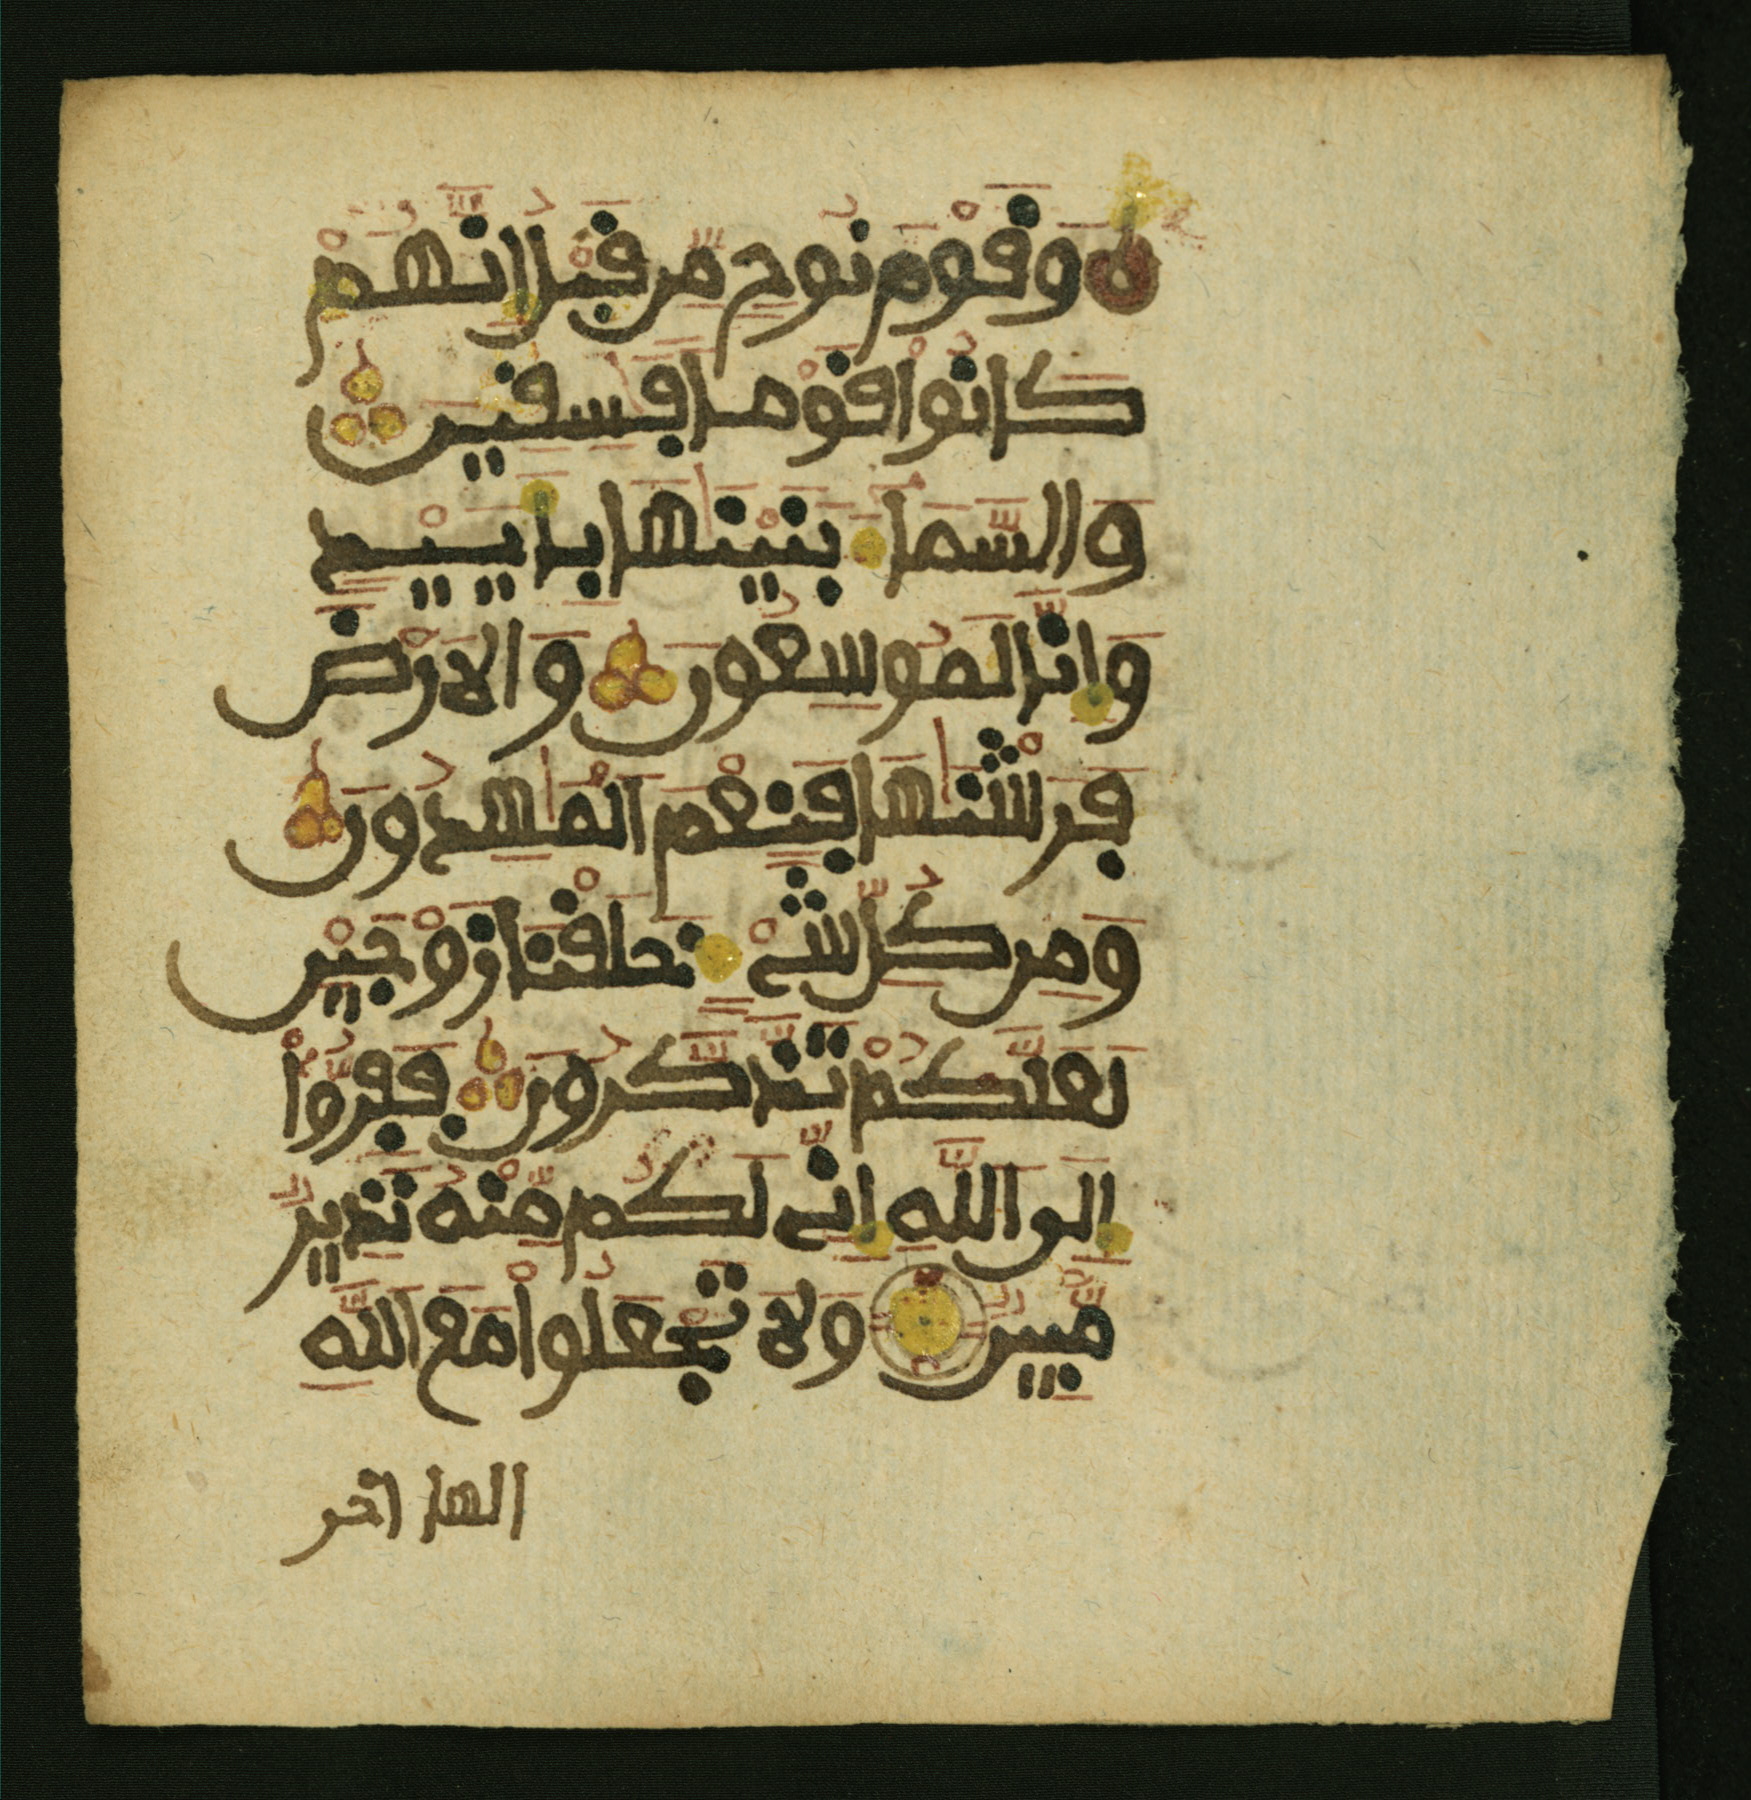 وَقَوْمَ نُوحٍ مِّن قَبْلُ إِنَّهُمْ
كَانُواْ قَوْماً فَٰسِقِينَ
وَالسَّمَآءَ بَنَيْنَٰهَا بِأَيْيدٍ
وَإِنَّا لَمُوسِعُونَ وَالَارْضَ
فَرَشْنَٰهَا فَنِعْمَ الْمَٰهِدُونَ
وَمِن كُلِّ شَےْءٍ خَلَقْنَا زَوْجَيْنِ
لَعَلَّكُمْ تَذَّكَّرُونَ فَفِرُّواْ
إِلَى اللَّهِ إِنِّے لَكُم مِّنْهُ نَذِيرٌ
مُّبِينٌ وَلَا تَجْعَلُواْ مَعَ اللَّهِ
الها اخر